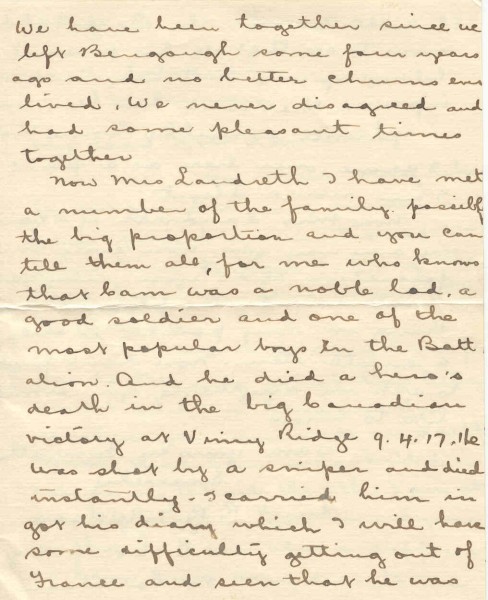 We have been together since we
left Bengough some four years
ago and no better chums ever
lived. We never disagreed and
had some pleasant times
together
Now Mrs Landreth I have met
a number of the family. possibly
the big proportion and you can
tell them all, for me who knows
that Cam was a noble lad, a
good soldier and one of the
most popular boys in the Batt
alion. And he died a hero's
death in the big Canadian
victory at Vimy Ridge 9.4.17. He
was shot by a sniper and died
instantly - I carried him in
got his diary which I will have
some difficulty getting out of
France and seen that he was